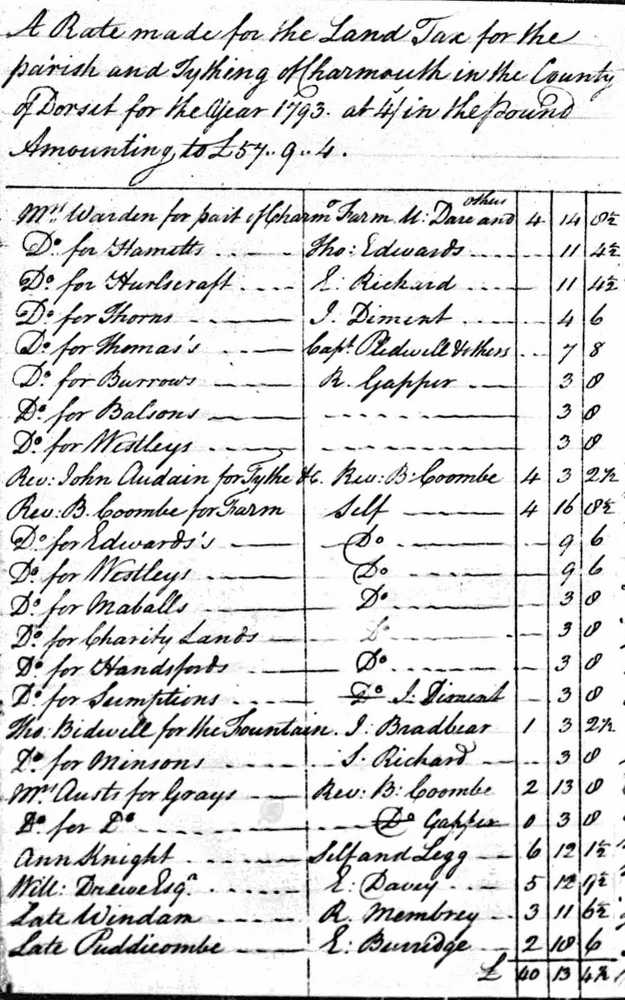 A Rate made for the Land Tax for the
parish and Tything of Charmouth in the County
of Dorset for the Year 1793. at 4/ in the Pound
Amounting to £57..9..4.
Mrs Warden for part of Charmo Farm M: Dare and others 4 14 8½
Do. for Hametts Tho: Edwards 11 4½
Do. for Hurlscraft E: Richard 11 4½
Do. for Thorns J. Diment 4 6
Do. for Thomas's Capt. Pledwell & others 7 8
Do. for Burrows R. Gapper 3 8
Do. for Balsons 3 8
Do. for Westleys 3 8
Rev: John Audain for Tythe &c. Rev: B: Coombe 4 3 2½
Rev: B. Coombe for Farm Self 4 16 8½
Do. for Edwards's Do 9 6
Do. for Westleys Do 9 6
Do. for Maballs Do. 3 8
Do. for Charity Lands Do 3 8
Do. for Handsfords Do. 3 8
Do. for Sumptions Do J. Diment 3 8
Tho: Bidwell for the Fountain. J. Bradbear 1 3 2½
Do. for Minsons S. Richard 3 8
Mrs. Austs for Grays Rev: B: Coombe 2 13 8
Do. for Do. Do Gapper 0 3 8
Ann Knight Self and Legg 6 12 1½
Will: Drewe Esqr. E: Davey 5 12 9½
Late Windam R. Membrey 3 11 6½
Late Puddicombe E: Burridge 2 18 6
£ 40 13 4½